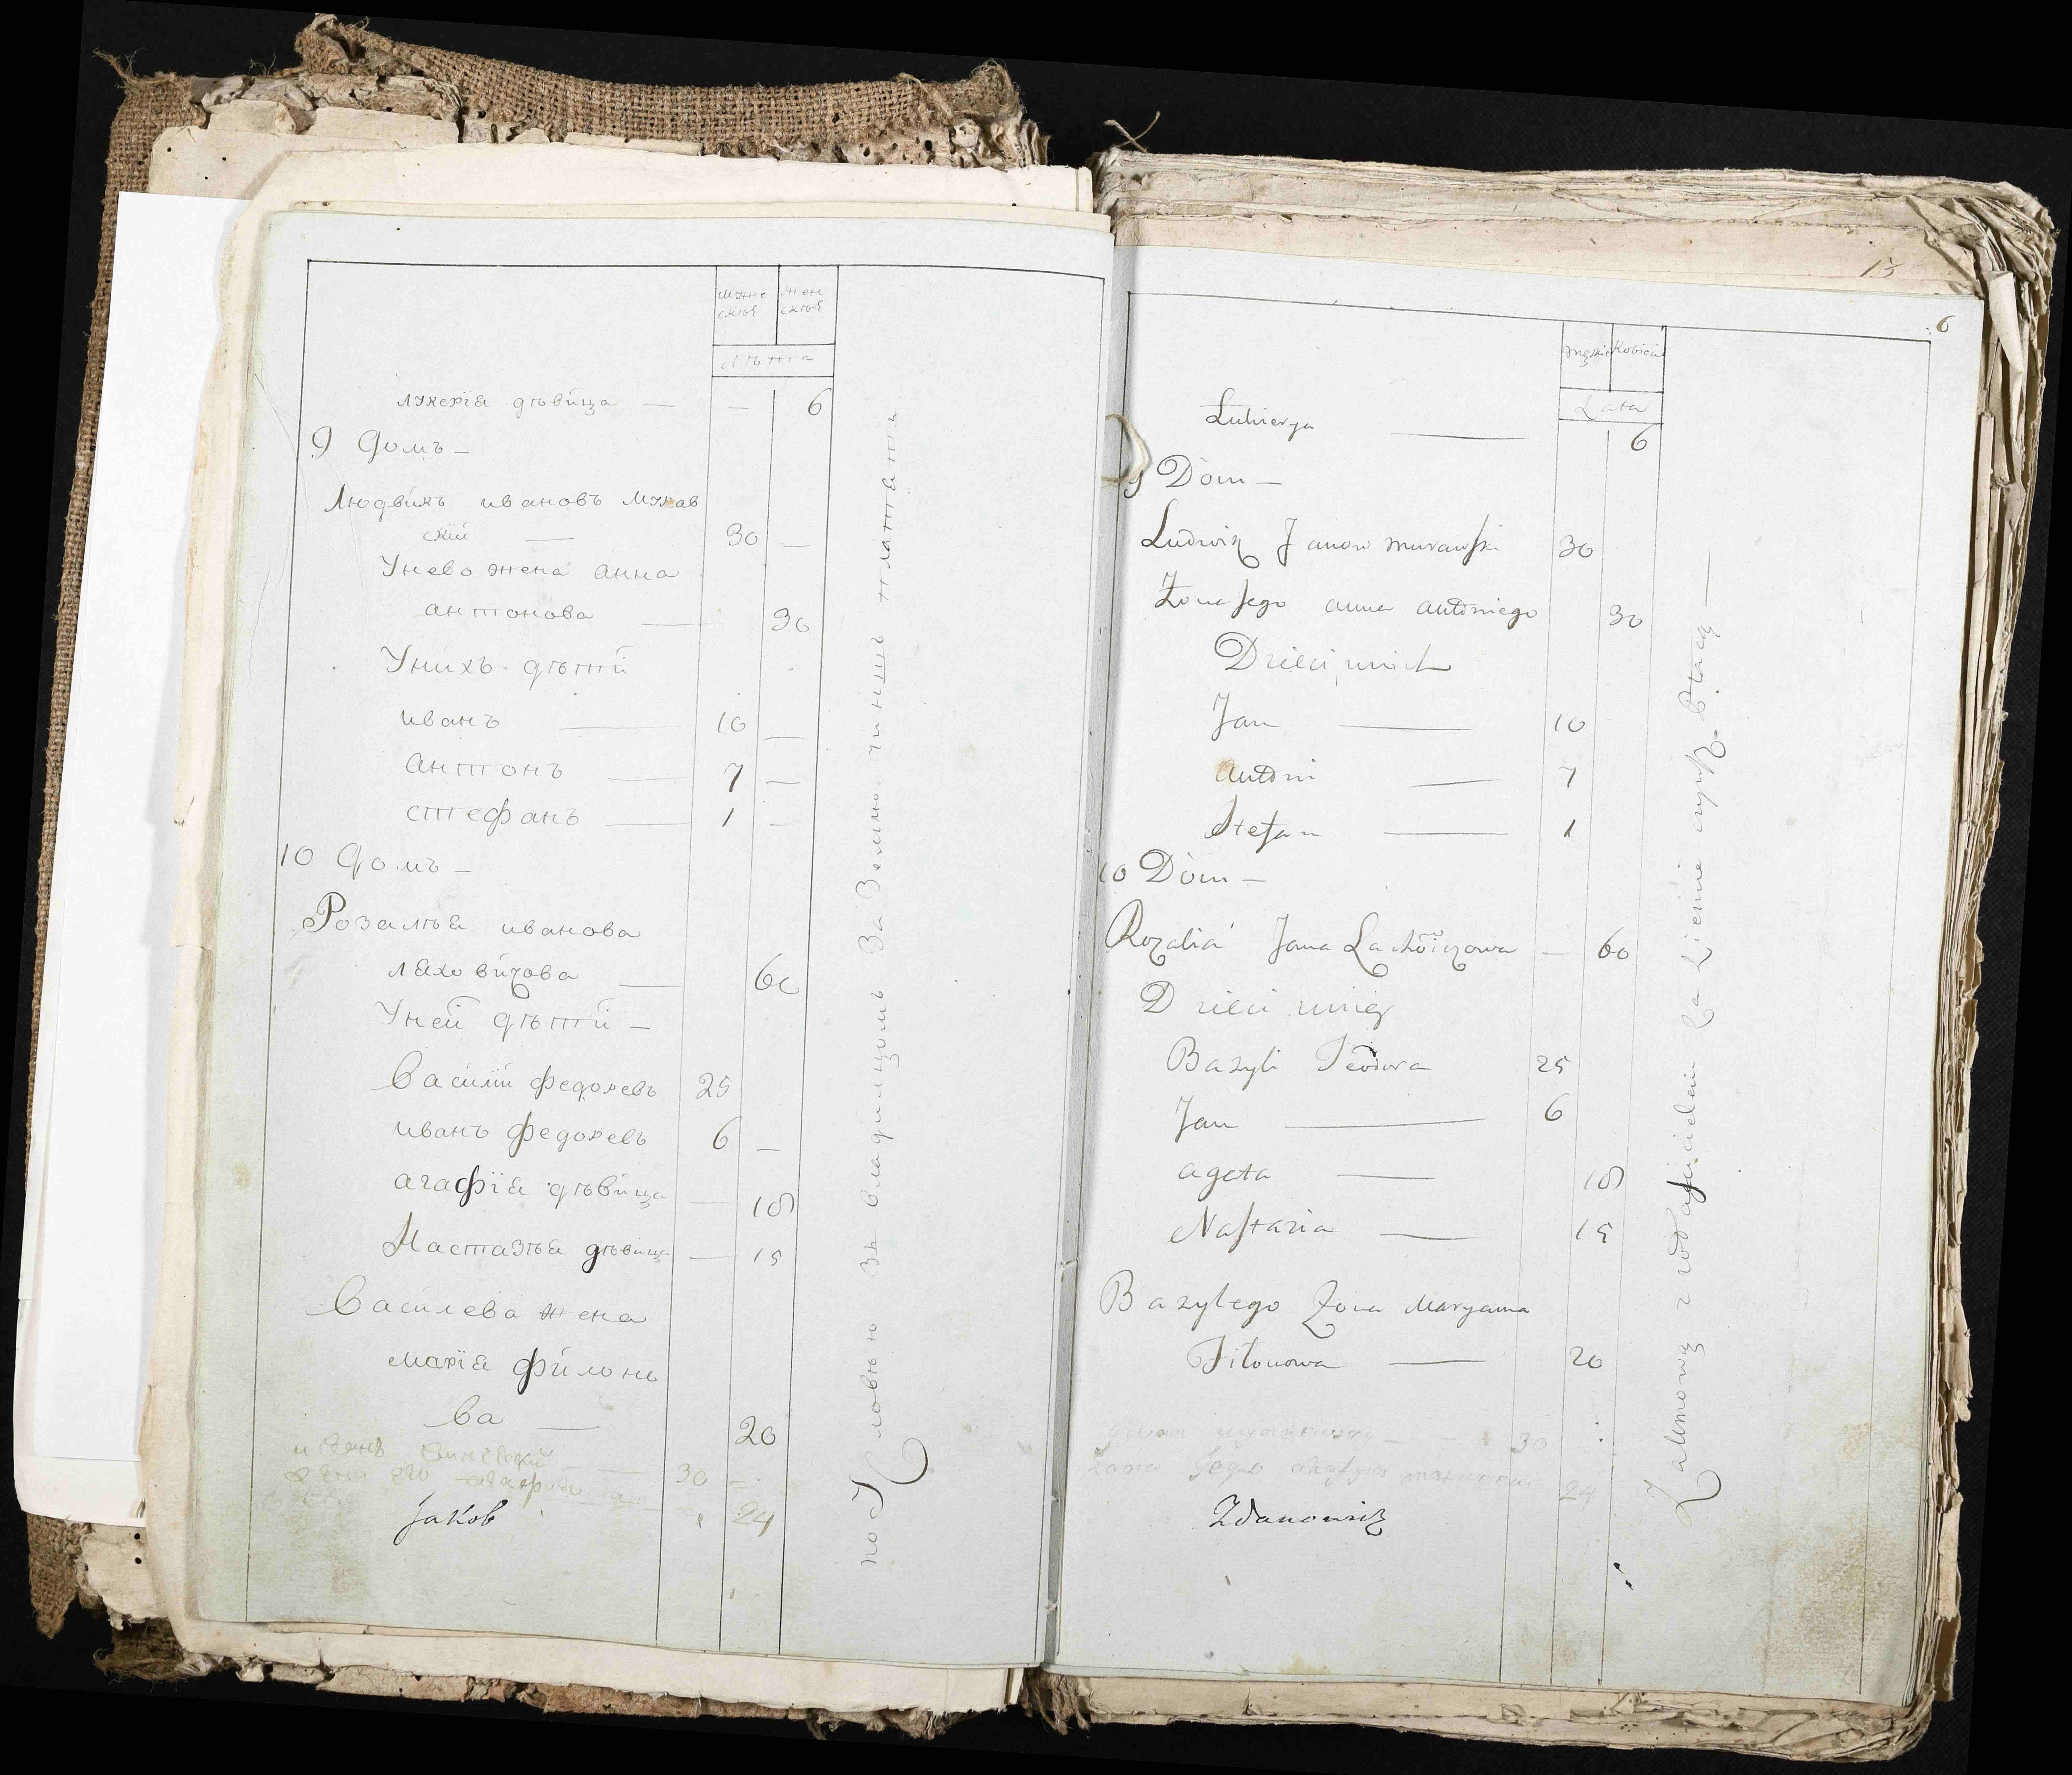 мужс женс
ской ской
лѣта
лукерія дѣвица — — 6
9 Домъ —
Людвикъ ивановъ Мурав
скій — 30 —
Унево жена анна
антонова — 30
Унихъ дѣтй
иванъ — 10 —
антонъ — 7 —
стефанъ — 1 —
10 Домъ —
Розалѣя иванова
ляховичова — 60
Уней дѣтй —
Василій федоревъ 25
иванъ федоревъ 6 —
агафія дѣвица — 18
Настазѣя дѣвица — 15
Василева жена
марія филоно
ва — 20
30 —
24
Jakob
по условью зъ владилцомъ За Землю чиншъ платятъ
15
6
męskie Kobiece
Lata
Łukierya — 6
9 Dóm —
Ludwik Janow murawski 30
Żona Jego anna antoniego 30
Dzieci u nich
Jan — 10
antoni — 7
Stefan — 1
10 Dóm —
Rozalia Jana Lachowiczowa — 60
Dzieci u niey
Bazyli Teodora 25
Jan — 6
agata — 18
Nastazia — 15
Bazylego Żona Maryanna
Filonowa — 20
30
Żona Jego 24
Zdanowicz
Za umową z włascicielem Za Ziemie czynsz płacą —